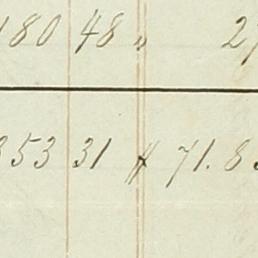 180 48 " 2
353 31 # 71.8